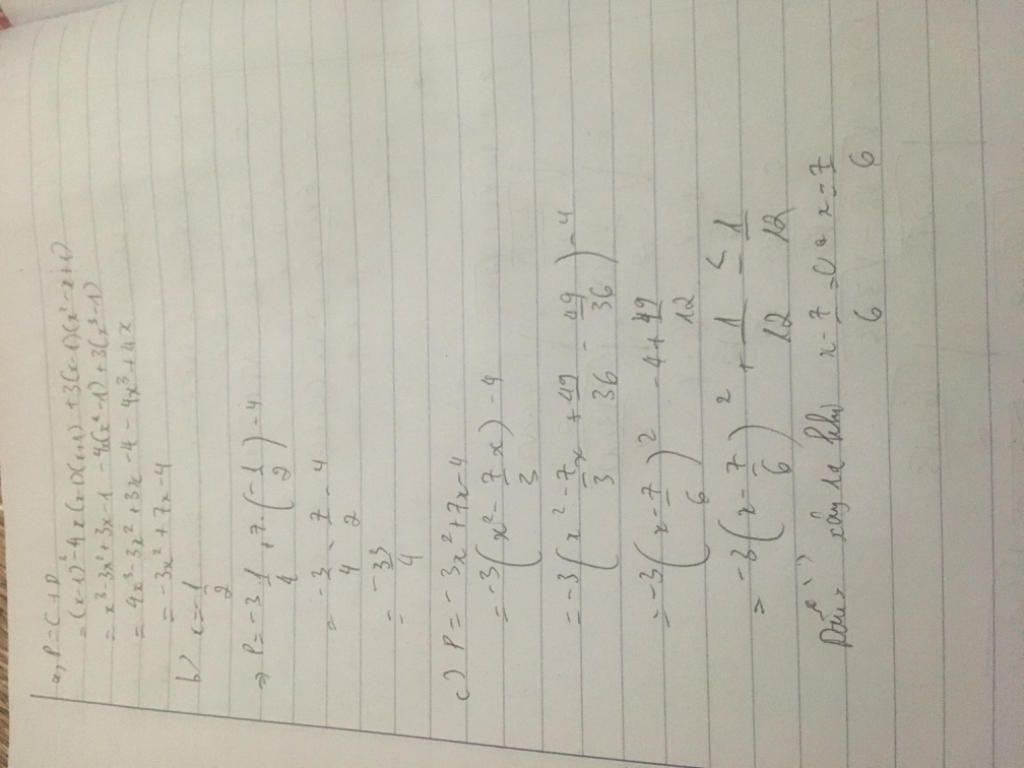 a, P = C + D
= (x-1)³ - 4x(x-1)(x+1) + 3(x-1)(x²+x+1)
= x³ - 3x² + 3x - 1 - 4x(x²-1) + 3(x³-1)
= 4x³ - 3x² + 3x - 4 - 4x³ + 4x
= -3x² + 7x - 4
b) x = -1/2
⇒ P = -3·1/4 + 7·(-1/2) - 4
= -3/4 - 7/2 - 4
= -33/4
c) P = -3x² + 7x - 4
= -3(x² - 7/3 x) - 4
= -3(x² - 7/3 x + 49/36 - 49/36) - 4
= -3(x - 7/6)² - 4 + 49/12
= -3(x - 7/6)² + 1/12 ≤ 1/12
Dấu "=" xảy ra khi x - 7/6 = 0 ⇔ x = 7/6